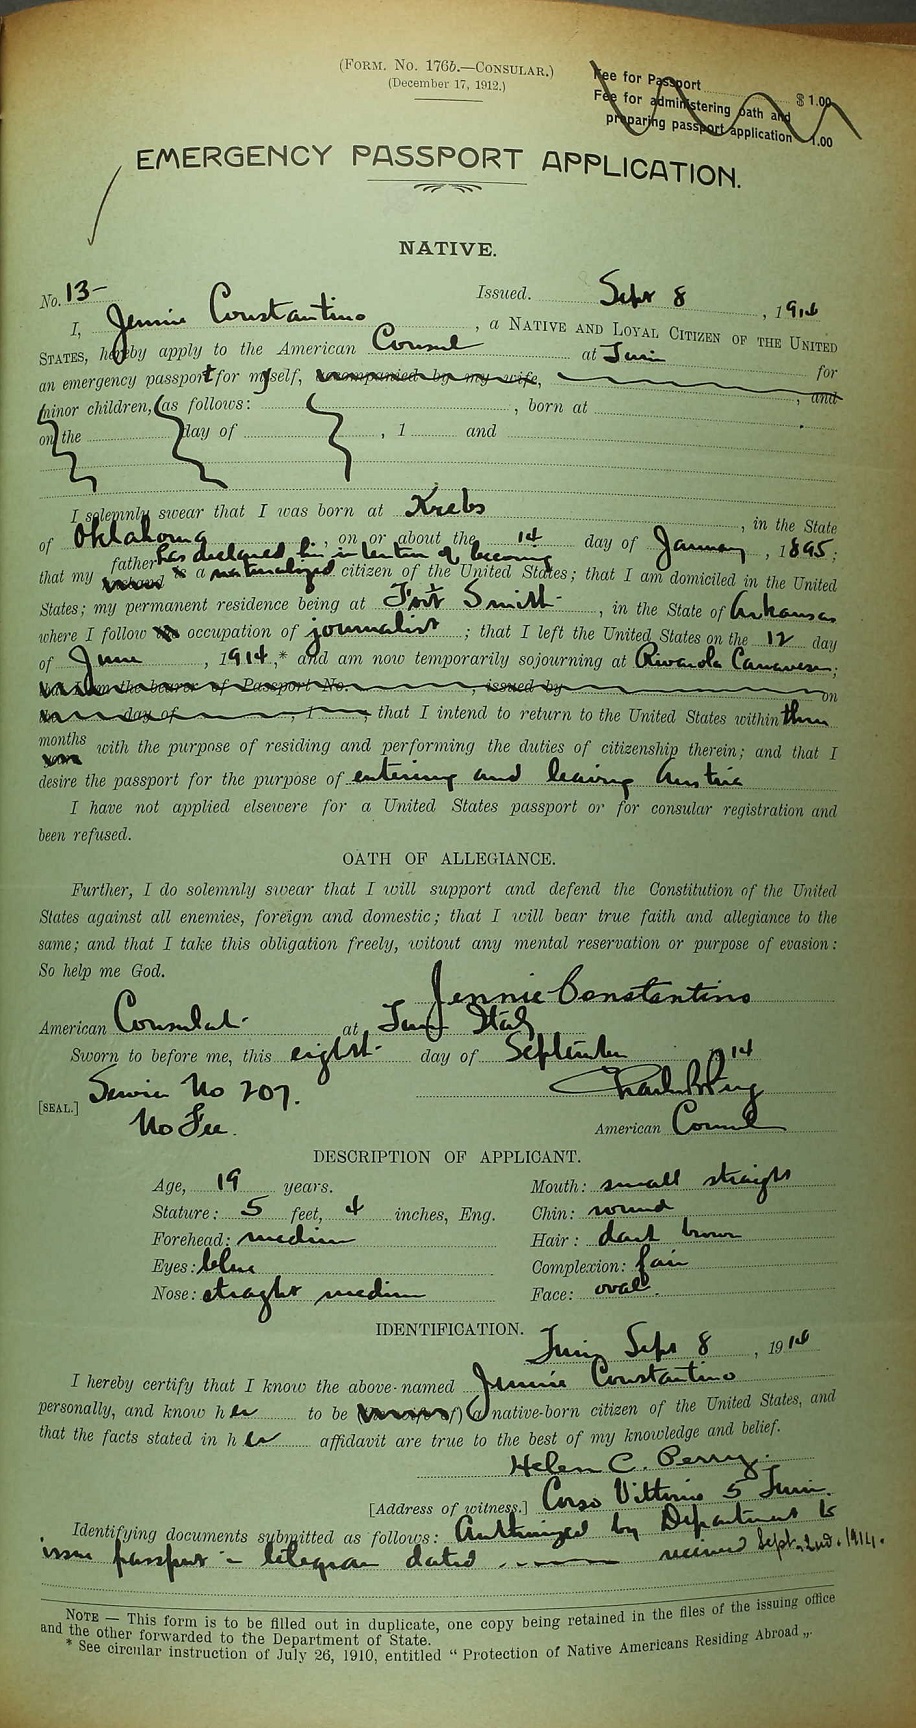 (FORM. No. 176b.—CONSULAR.)
(December 17, 1912.)
Fee for Passport $ 1.00
Fee for administering oath and
preparing passport application 1.00
EMERGENCY PASSPORT APPLICATION.
NATIVE.
No. 13- Issued. Sept 8, 1914
I, Jennie Constantino, a NATIVE AND LOYAL CITIZEN OF THE UNITED
STATES, hereby apply to the American Consul at Turin for
an emergency passport for myself, accompanied by my wife, and
minor children, as follows: , born at
on the day of , 1 and
I solemnly swear that I was born at Krebs, in the State
of Oklahoma, on or about the 14 day of January, 1895;
father has declared his intention of becoming
that my husband is a naturalized citizen of the United States; that I am domiciled in the United
States; my permanent residence being at Fort Smith, in the State of Arkansas
where I follow the occupation of journalist; that I left the United States on the 12 day
of June, 1914,* and am now temporarily sojourning at Rivarolo Canavese;
that I am the bearer of Passport No. , issued by on
the day of , 1 , that I intend to return to the United States within three
months
with the purpose of residing and performing the duties of citizenship therein; and that I
desire the passport for the purpose of entering and leaving Austria
I have not applied elsewere for a United States passport or for consular registration and
been refused.
OATH OF ALLEGIANCE.
Further, I do solemnly swear that I will support and defend the Constitution of the United
States against all enemies, foreign and domestic; that I will bear true faith and allegiance to the
same; and that I take this obligation freely, witout any mental reservation or purpose of evasion:
So help me God.
Jennie Constantino
American Consulat at Turin Italy
Sworn to before me, this eight day of September 1914
Service No 207.
[SEAL.]
No Fee.
American Consul
DESCRIPTION OF APPLICANT.
Age, 19 years. Mouth: small straight
Stature: 5 feet, 4 inches, Eng. Chin: round
Forehead: medium Hair: dark brown
Eyes: blue Complexion: fair
Nose: straght medium Face: oval.
IDENTIFICATION.
Turin Sept 8, 1914
I hereby certify that I know the above-named Jennie Constantino
personally, and know her to be a native-born citizen of the United States, and
that the facts stated in her affidavit are true to the best of my knowledge and belief.
Helen C. Perry.
[Address of witness.] Corso Vittorio 5 Turin.
Identifying documents submitted as follows: Authorized by Department to
issue passport - telegram dated received Sept. 2nd. 1914.
NOTE — This form is to be filled out in duplicate, one copy being retained in the files of the issuing office
and the other forwarded to the Department of State.
* See circular instruction of July 26, 1910, entitled “ Protection of Native Americans Residing Abroad „.